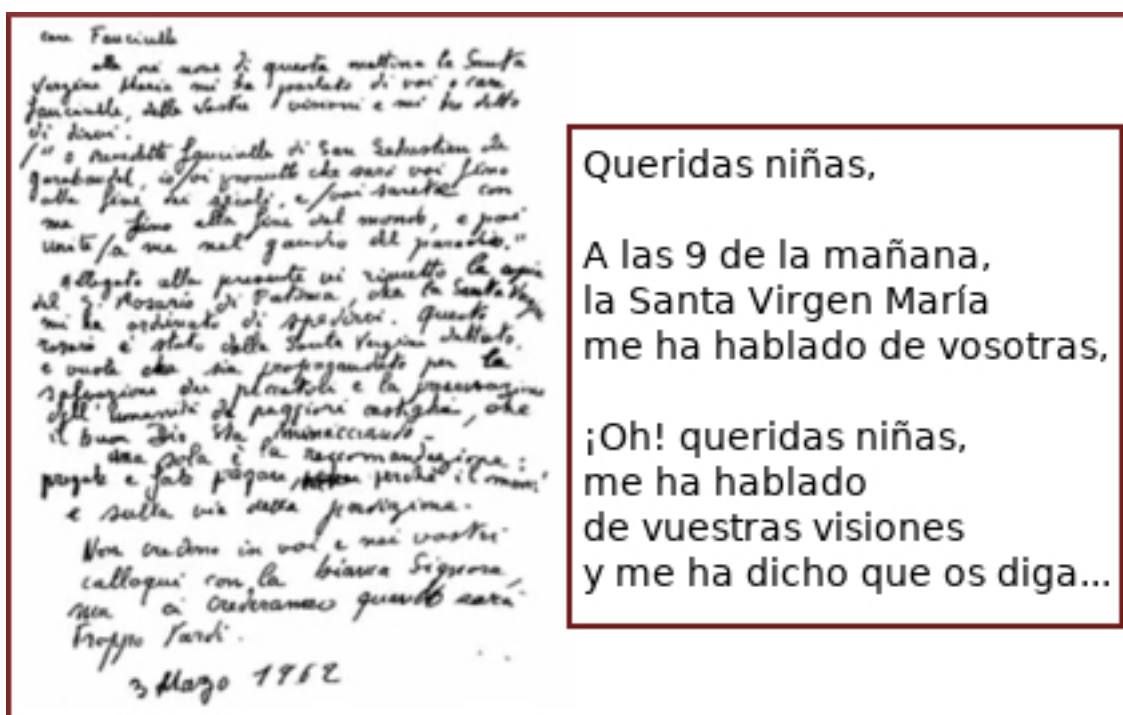 care Fanciulle
alle ore nove di questa mattina la Santa
Vergine Maria mi ha parlato di voi o care
fanciulle, delle vostre visioni e mi ha detto
di dirvi.
" o benedette fanciulle di San Sebastian de
garabandal, io vi prometto che sarò voi fino
alla fine dei secoli, e voi sarete con
me fino alla fine del mondo, e poi
unite a me nel gaudio del paradiso."
Allegato alla presente vi rimetto la copia
del S. Rosario di Fatima, che la Santa Vergine
mi ha ordinato di spedirvi. questo
rosario è stato dalla Santa Vergine dettato,
e vuole che sia propagandato per la
salvazione dei peccatori e la preservazione
dell'umanità da peggiori castighi, che
il buon Dio sta minacciando.
Una sola è la raccomandazione:
pregate e fate pregare, perchè il mondo
è sulla via della perdizione.
Non credono in voi e nei vostri
colloqui con la bianca Signora,
ma ci crederanno quando sarà
troppo tardi.
3 Marzo 1962
Queridas niñas,
A las 9 de la mañana,
la Santa Virgen María
me ha hablado de vosotras,
¡Oh! queridas niñas,
me ha hablado
de vuestras visiones
y me ha dicho que os diga...